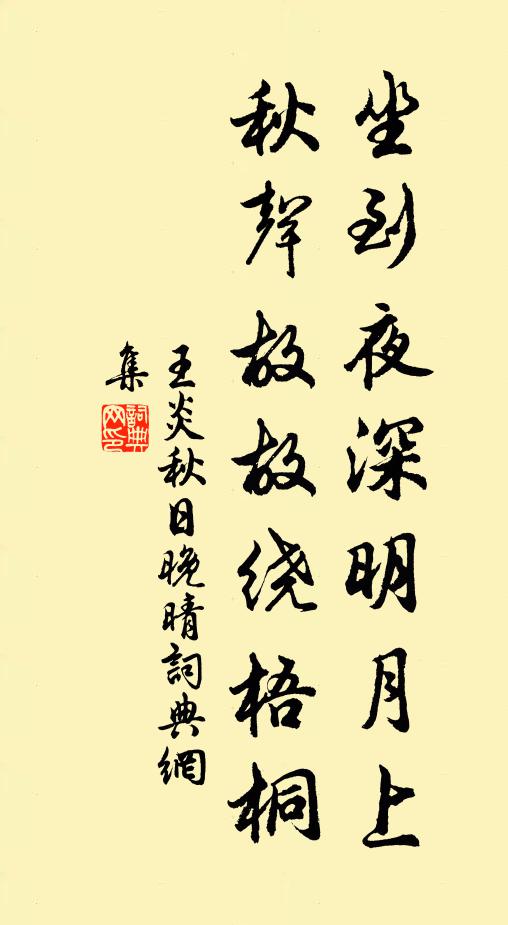 坐到夜深明月上
秋聲故故绕梧桐
王炎秋日晚晴詞典網
集
詞典
网印